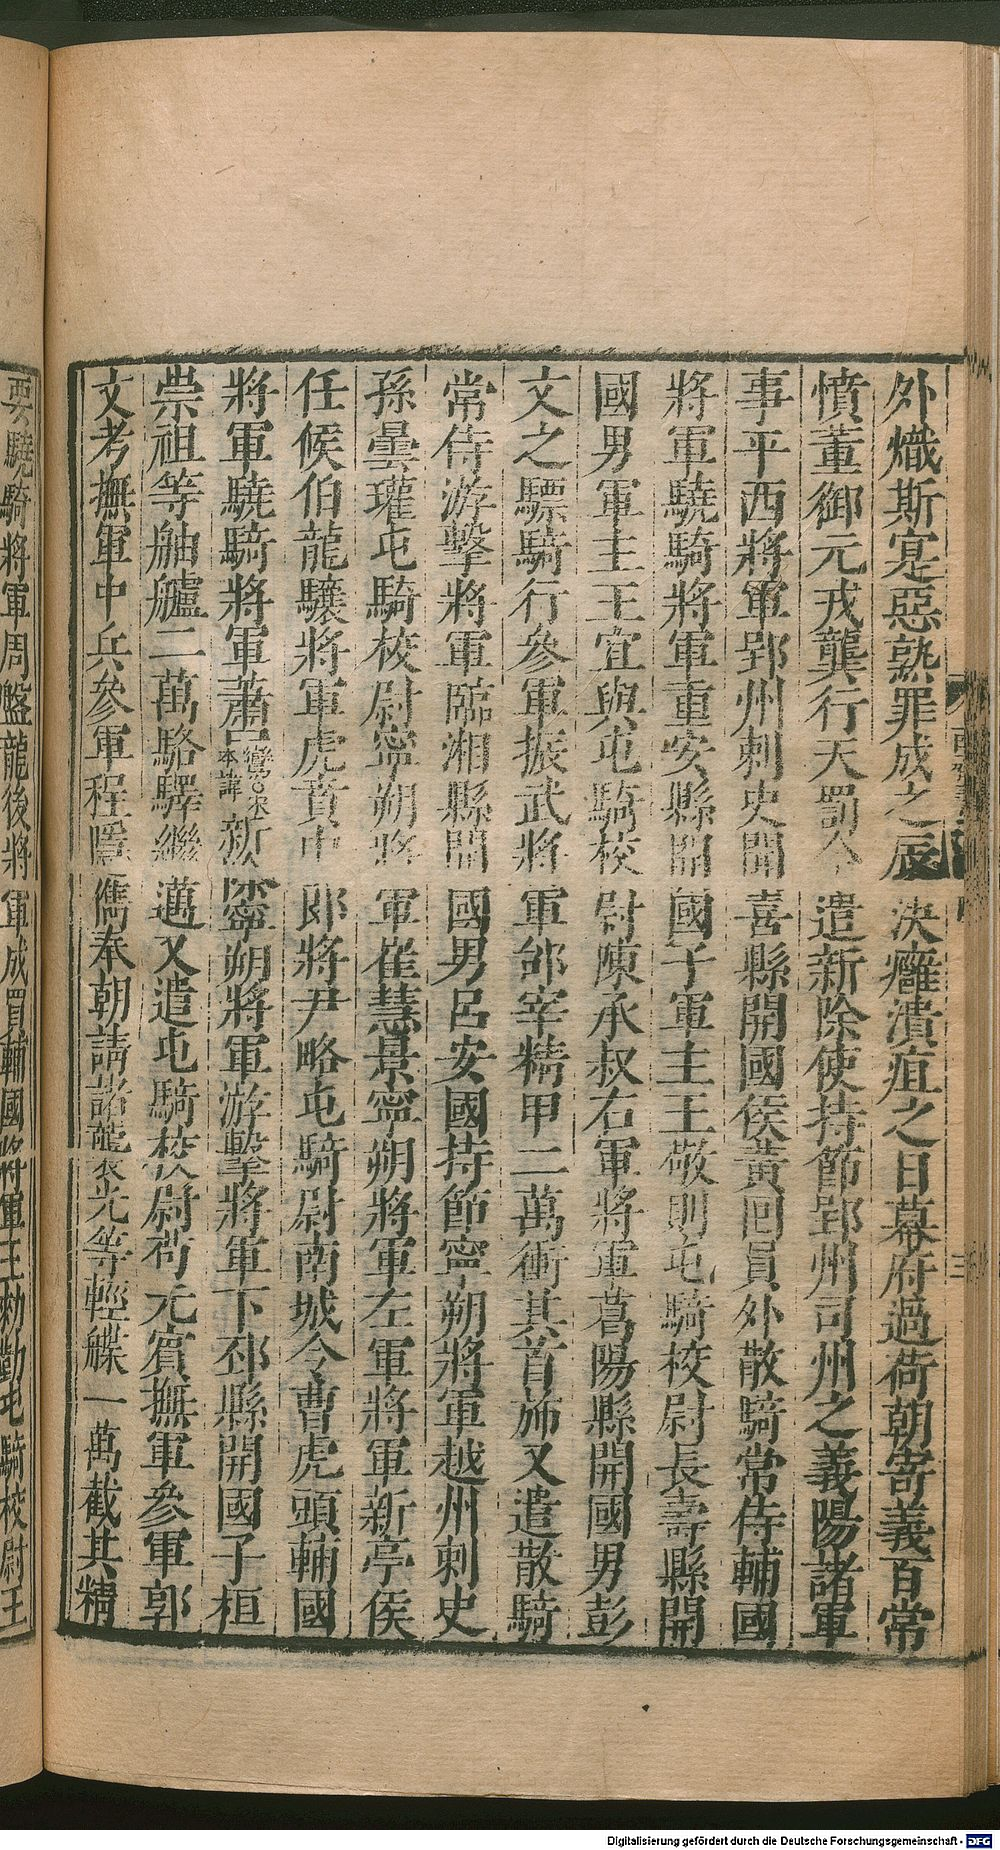 外熾斯寔惡熟罪成之辰決癰潰疽之日幕府過荷朝寄義百常
憤董御元戎龔行天罰今遣新除使持節郢州司州之義陽諸軍
事平西將軍郢州刺史聞喜縣開國侯黃回員外散騎常侍輔國
將軍驍騎將軍重安縣開國子軍主王敬則屯騎校尉長壽縣開
國男軍主王宜與屯騎校尉陳承叔右軍將軍葛陽縣開國男彭
文之驃騎行參軍振武將軍邰宰精甲二萬衝其首斾又遣散騎
常侍游擊將軍臨湘縣開國男呂安國持節寧朔將軍越州刺史
孫曇瓘屯騎校尉寧朔將軍崔慧景寧朔將軍左軍將軍新亭侯
任候伯龍驤將軍虎賁中郎將尹略屯騎尉南城令曹虎頭輔國
將軍驍騎將軍蕭
本諱新除寧朔將軍游擊將軍下邳縣開國子桓
崇祖等舳艫二萬駱驛繼邁又遣屯騎校尉苟元賓撫軍參軍郭
文考撫軍中兵參軍程隱雋奉朝請諸龍衣光等輕艓一萬截其精
要驍騎將軍周盤龍後將軍成買輔國將軍王勑勤屯騎校尉王
三
Digitalisierung gefördert durch die Deutsche Forschungsgemeinschaft - DFG